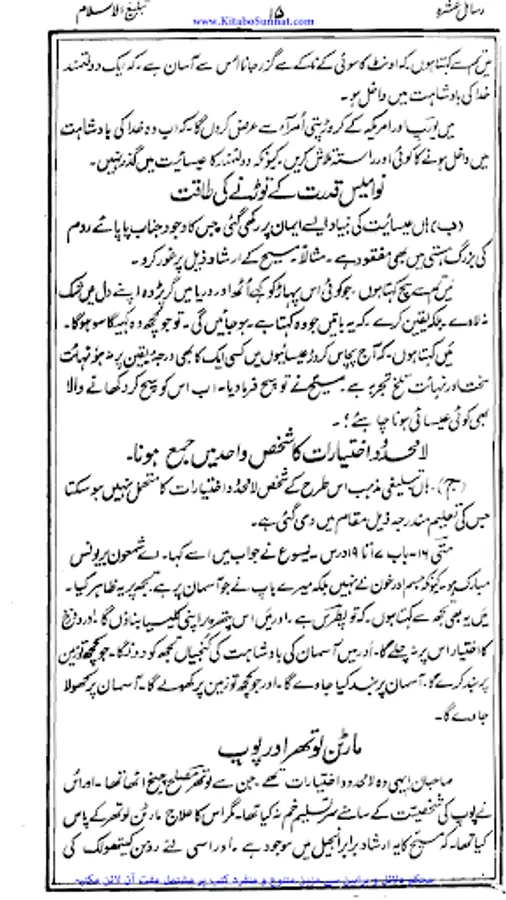 رسائل عشرہ
۱۵
تبلیغ الاسلام
www.KitaboSunnat.com
میں تم سے کہتا ہوں۔ کہ اونٹ کا سوئی کے ناکہ سے گزر جانا اُس سے آسان ہے۔ کہ ایک دولتمند
خدا کی بادشاہت میں داخل ہو۔
میں یورپ اور امریکہ کے کروڑ پتی اُمراء سے عرض کروں گا۔ کہ اب وہ خدا کی بادشاہت
میں داخل ہونے کا کوئی اور راستہ تلاش کریں۔ کیونکہ دولتمند کا عیسائیت میں گذر نہیں۔
نوامیس قدرت کے توڑنے کی طاقت
(ب) ہاں عیسائیت کی بنیاد ایسے ایمان پر رکھی گئی۔ جس کا وجود جناب پاپائے روم
کی بزرگ ہستی میں بھی مفقود ہے۔ مثلاً۔ مسیح کے ارشاد ذیل پر غور کرو۔
میں تم سے سچ کہتا ہوں۔ جو کوئی اس پہاڑ کو کہے اُٹھ اور دریا میں گر پڑ وہ اپنے دل میں شک
نہ لاوے۔ بلکہ یقین کرے کہ یہ باتیں جو وہ کہتا ہے۔ ہو جائیں گی۔ تو جو کچھ وہ کہیگا سو ہوگا۔
میں کہتا ہوں۔ کہ آج پچاس کروڑ عیسائیوں میں کسی ایک کا بھی درجہ یقین پر نہ ہونا نہائت
سخت اور نہائت تلخ تجربہ ہے۔ مسیح نے تو سچ فرما دیا۔ اب اس کو سچ کر دکھانے والا
بھی کوئی عیسائی ہونا چاہئے!۔
لا محدود اختیارات کا شخص واحد میں جمع ہونا۔
(ج)۔ ہاں تبلیغی مذہب اس طرح کے شخص لا محدود اختیارات کا متحمل نہیں ہو سکتا
جس کی تعلیم مندرجہ ذیل مقام میں دی گئی ہے۔
متی ۱۶۔ باب ۱۷ تا ۱۹ درس۔ یسوع نے جواب میں اسے کہا۔ اے شمعون بر یونس
مبارک ہو۔ کیونکہ جسم اور خون نے نہیں بلکہ میرے باپ نے جو آسمان پر ہے تجھ پر یہ ظاہر کیا۔
میں یہ بھی تجھ سے کہتا ہوں۔ کہ تو پطرس ہے۔ اور میں اس پتھر پر اپنی کلیسیا بناؤں گا۔ اور دوزخ
کا اختیار اس پر نہ چلے گا۔ اور میں آسمان کی بادشاہت کی کنجیاں تجھ کو دونگا۔ جو کچھ تو زمین
پر بند کرے گا۔ آسمان پر بند کیا جاوے گا۔ اور جو کچھ تو زمین پر کھولے گا۔ آسمان پر کھولا
جاوے گا۔
مارٹن لوتھر اور پوپ
صاحبان! یہی وہ لا محدود اختیارات تھے۔ جن سے لوتھر مصلح چیخ اٹھا تھا۔ اور اُس
نے پوپ کی شخصیت کے سامنے سر تسلیم خم نہ کیا تھا۔ مگر اس کا علاج مارٹن لوتھر کے پاس
کیا تھا۔ کہ مسیح کا یہ ارشاد برابر انجیل میں موجود ہے۔ اور اسی لئے رومن کیتھولک کی
محکم دلائل و براہین سے مزین متنوع و منفرد کتب پر مشتمل مفت آن لائن مکتبہ